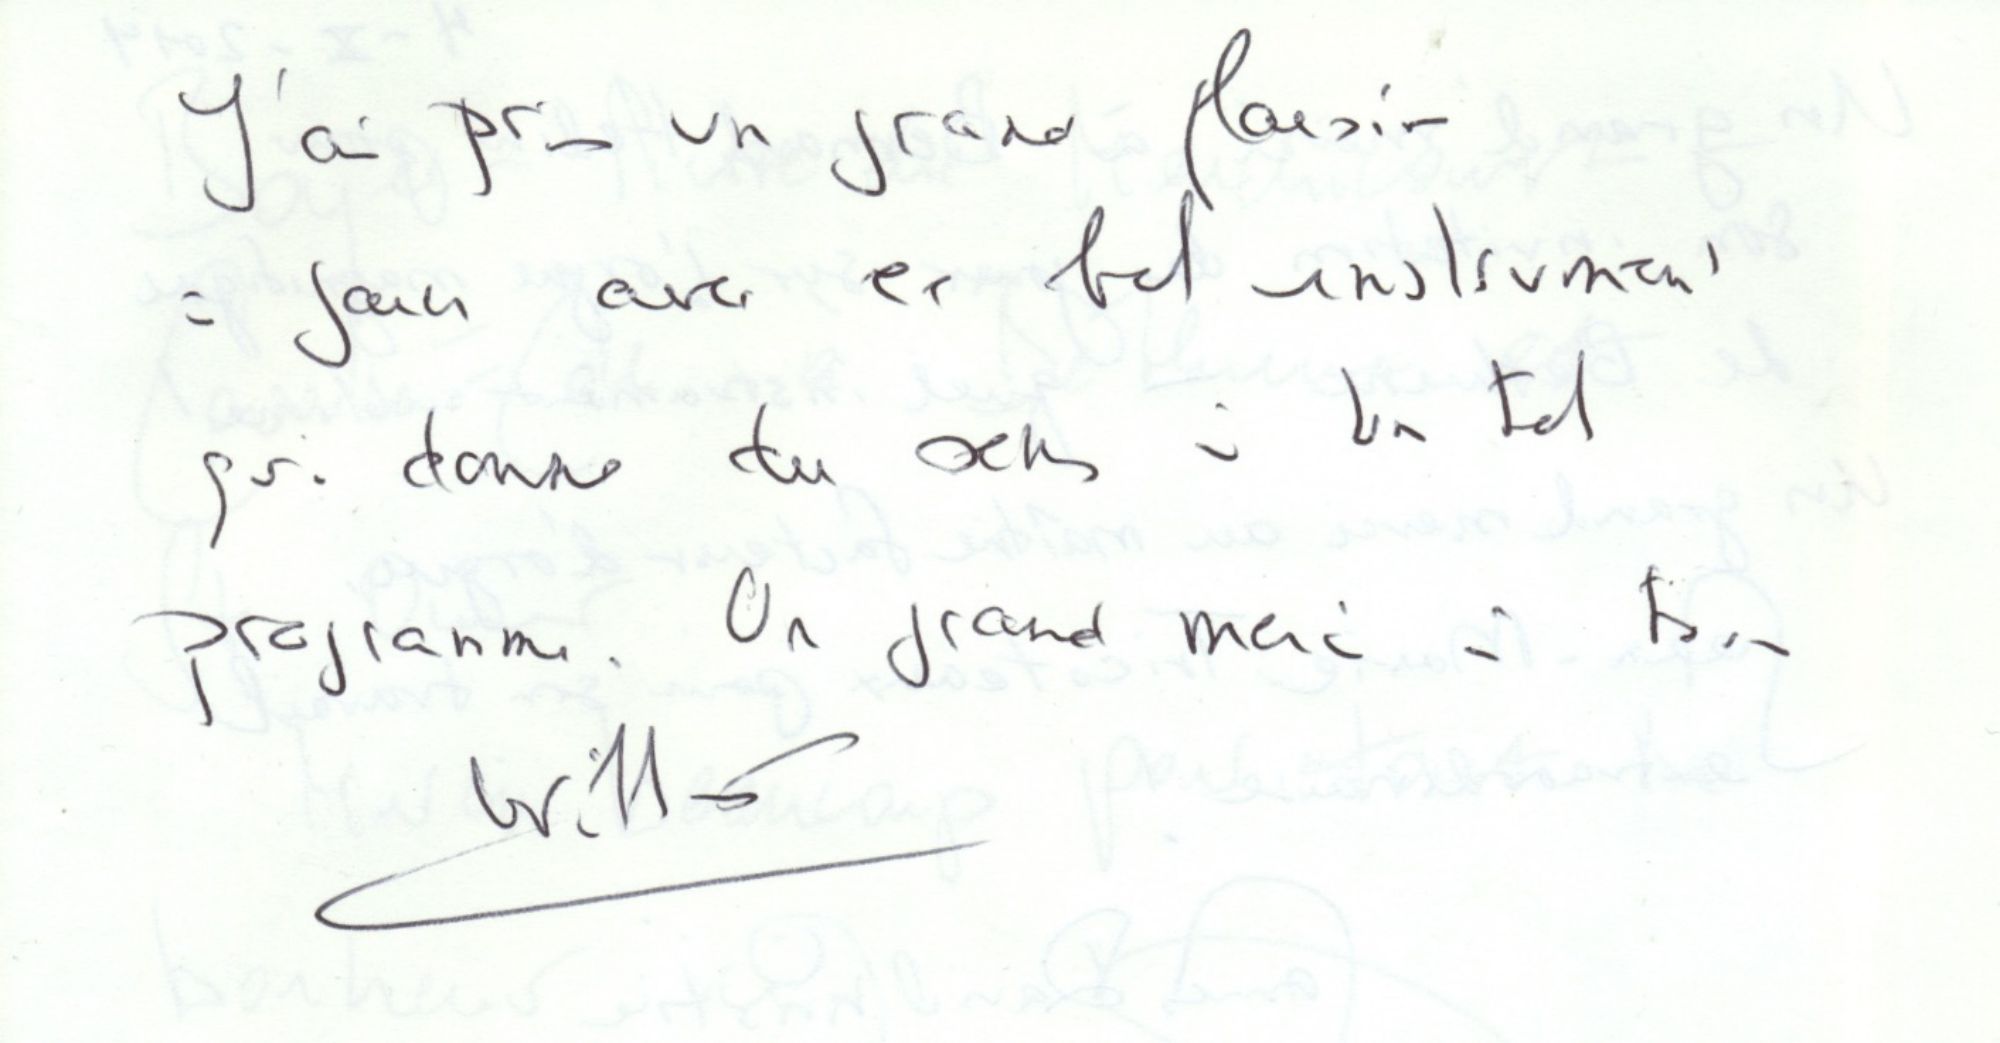 J'ai pris un grand plaisir
à jouer avec ce bel instrument
qui donne du sens à un tel
programme. Un grand merci à